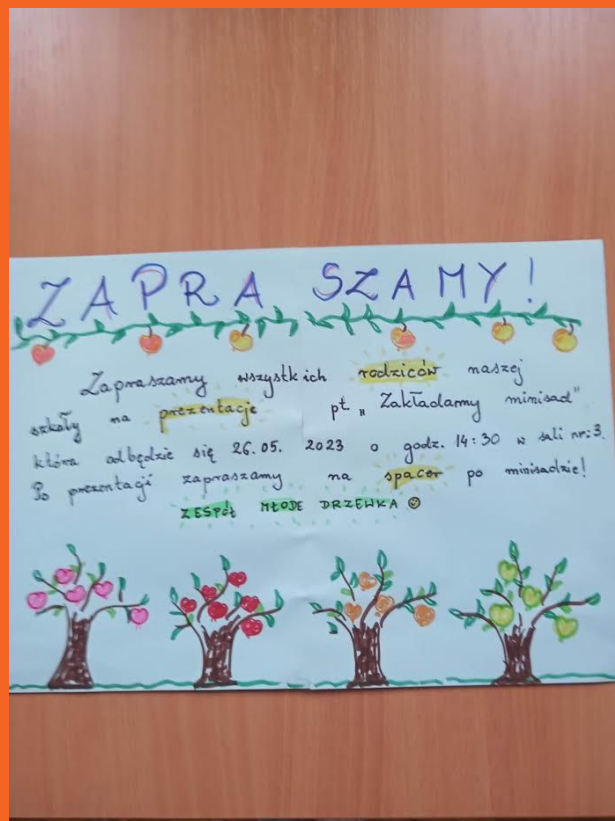 ZAPRA SZAMY!
Zapraszamy wszystkich rodziców naszej
szkoły na prezentacje pt. „Zakładamy minisad"
która odbędzie się 26.05. 2023 o godz. 14:30 w sali nr:3.
Po prezentacji zapraszamy na spacer po minisadzie!
ZESPÓŁ MŁODE DRZEWKA ☺